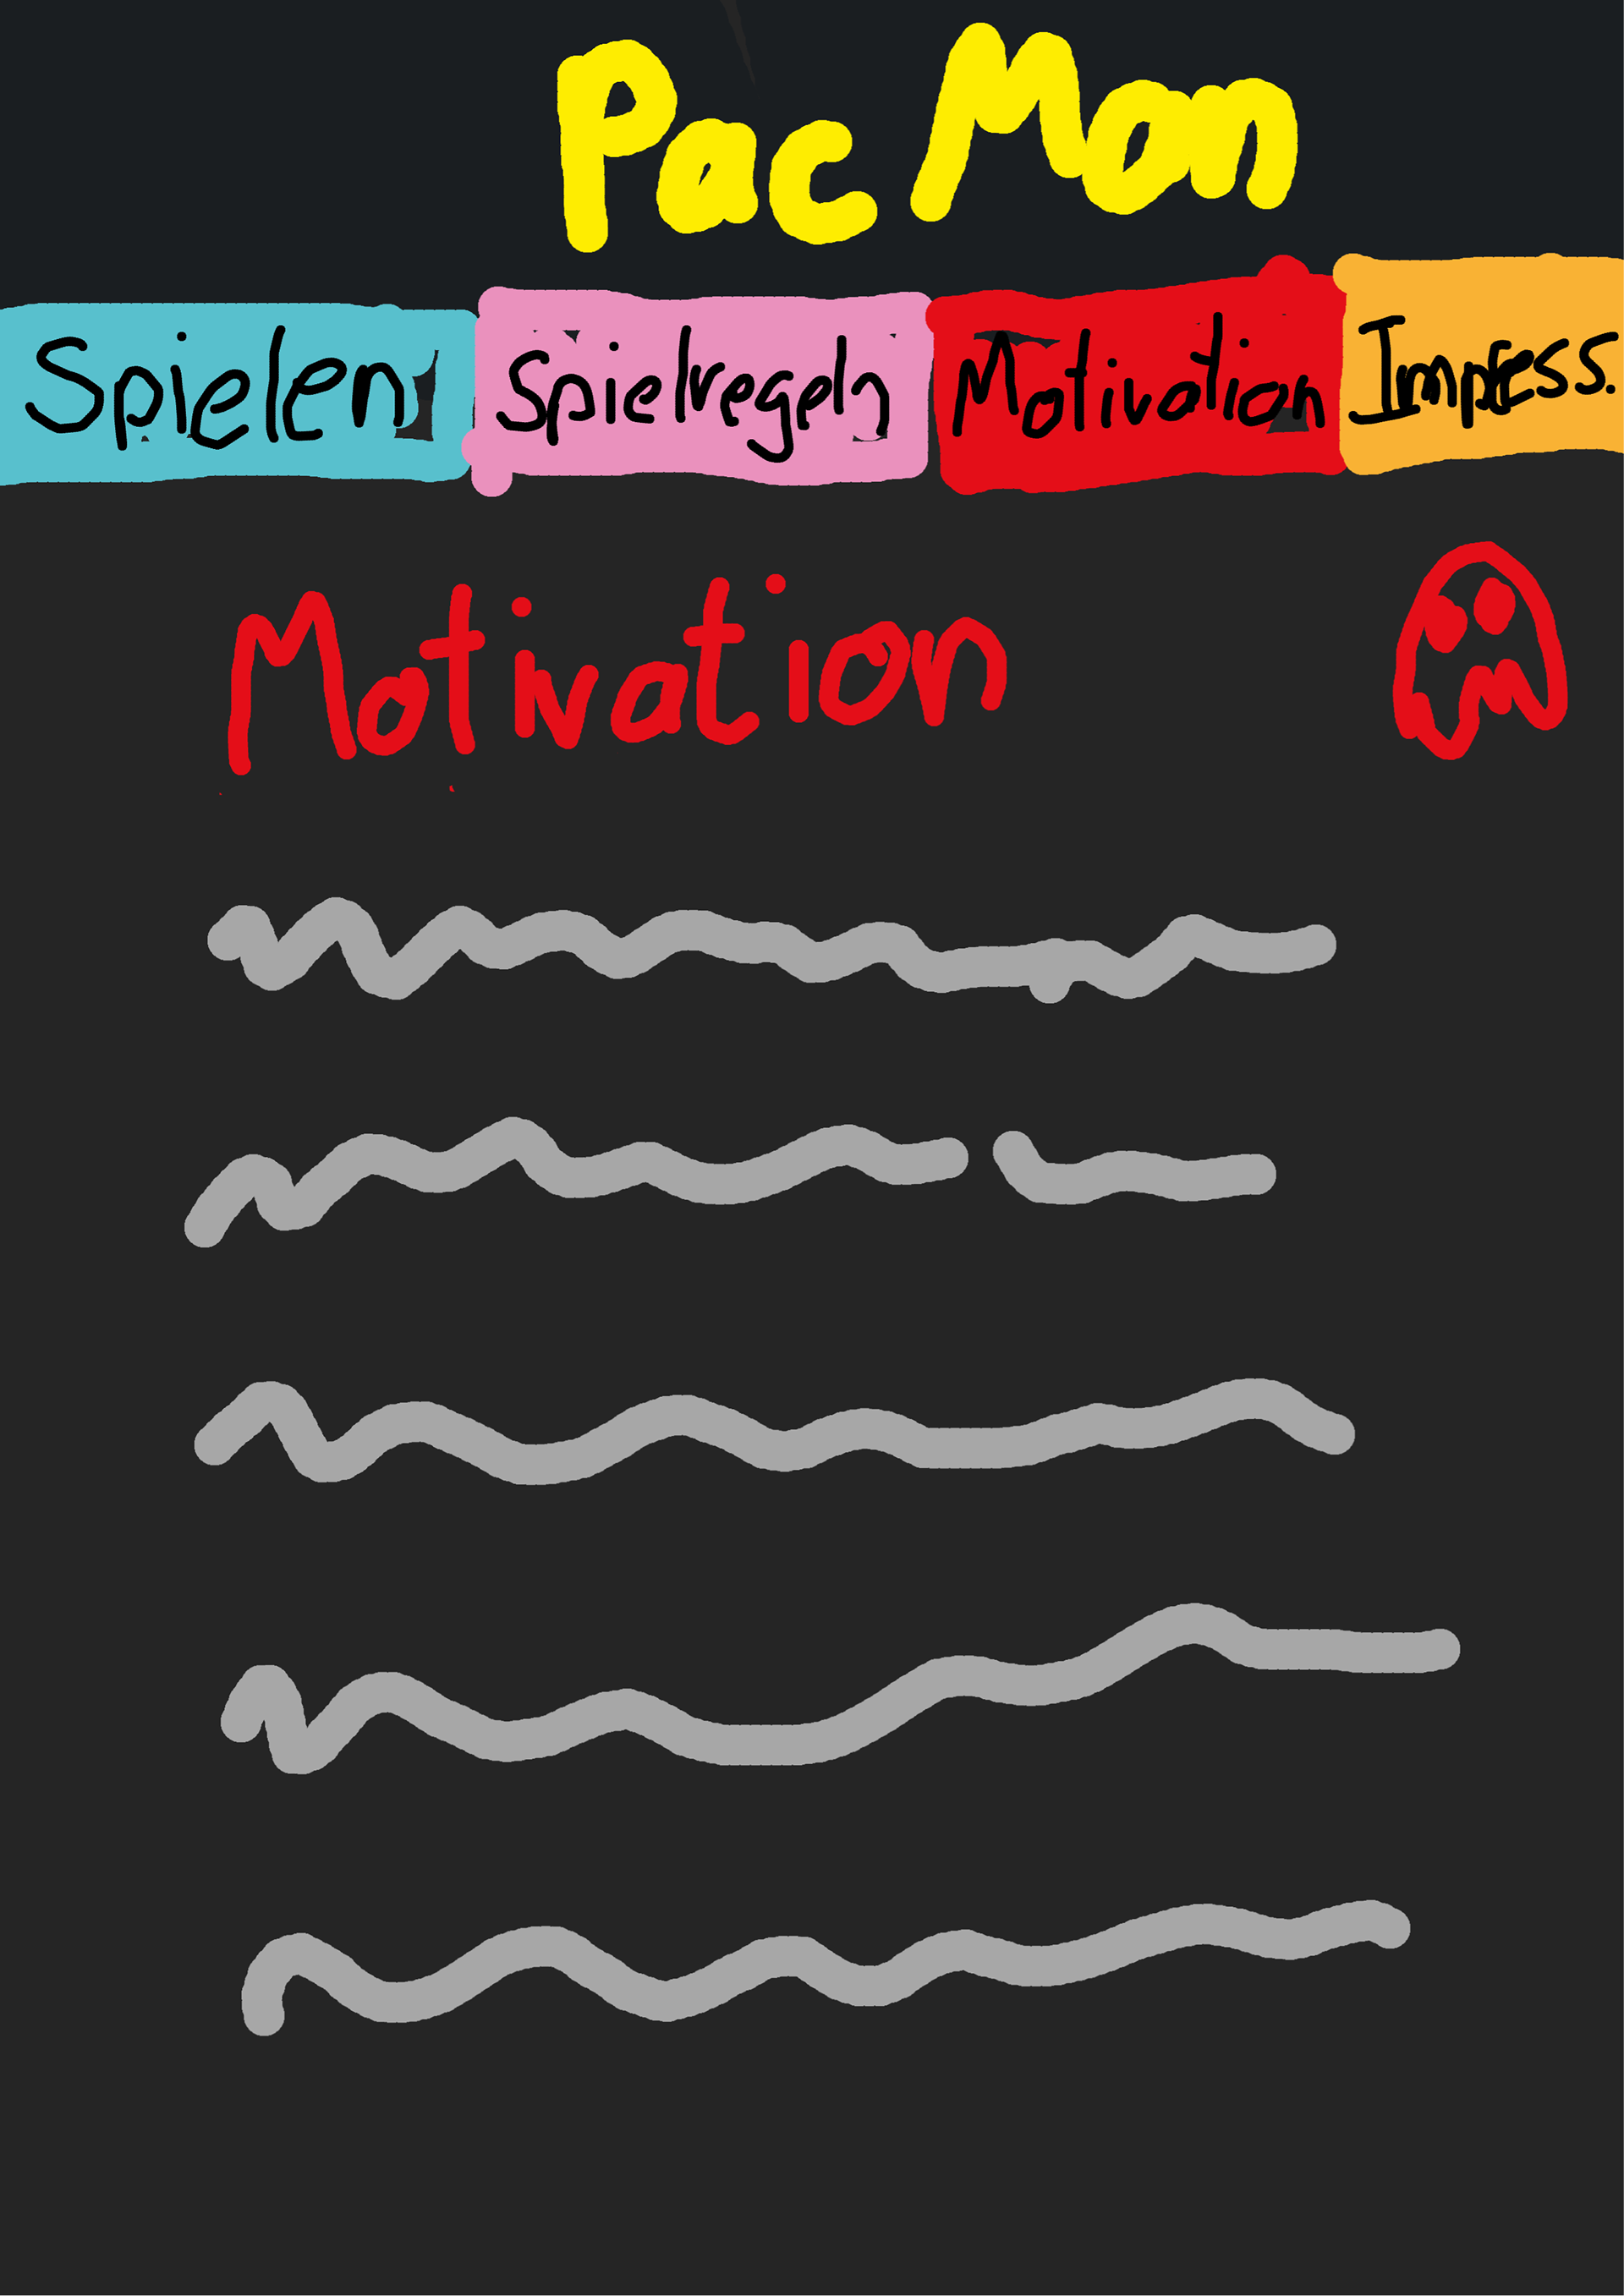 Pac Man
Spielen Spielregeln Motivation Impress.
Motivation